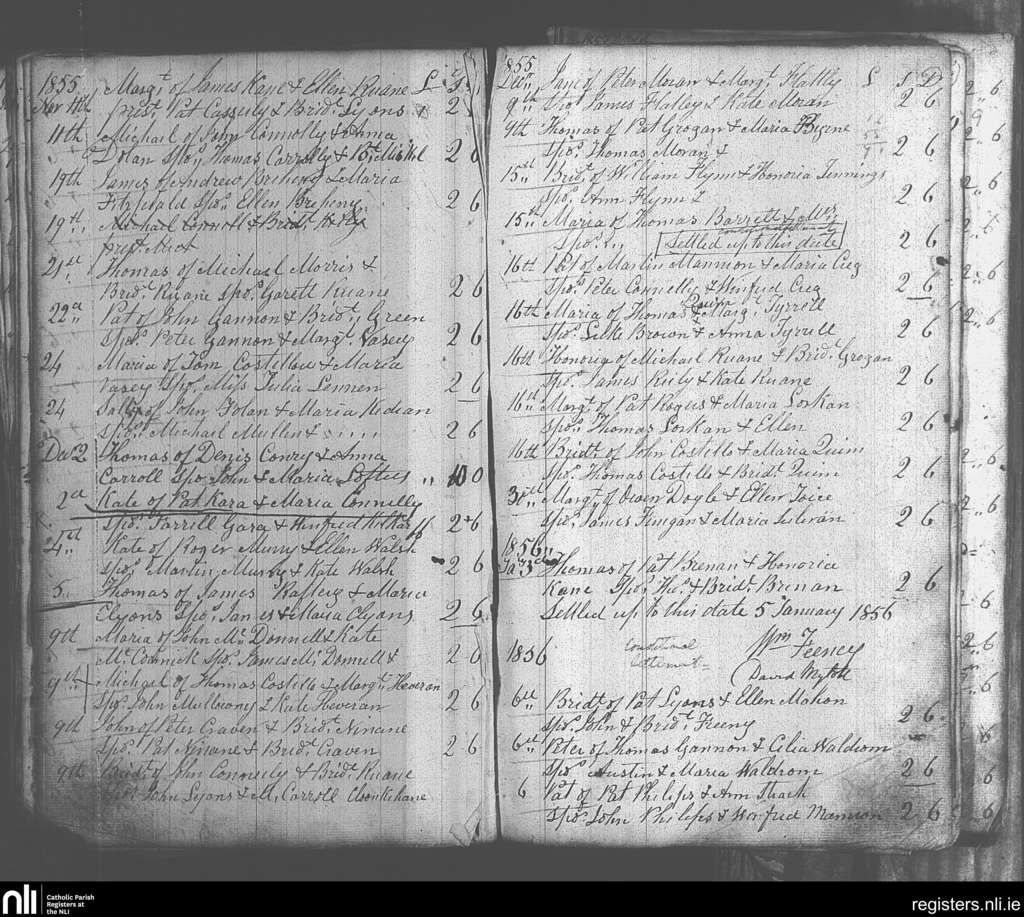 1855 Margt. of James Kane & Ellen Ruane £ S D
Nov 11th prest. Pat Casserly & Bridt. Lyons 2
11th Michael of John Connolly & Anna
Dolan Spos. Thomas Carrolly & Bt. 2 6
19th James of Andrew Breheny & Maria
Fitzgerald Spos. Ellen Breheny 2 6
19th Michael Connell & Bridt.
prest.
21st Thomas of Michael Morris &
Bridt. Ruane Spos. Garett Ruane 2 6
22d Pat of John Gannon & Bridt. Green
Spos. Peter Gannon & Margt. Vasey 2 6
24 Maria of Tom Costillow & Maria
Vasey Spos. Miss Julia Lennen 2 6
24 Sally of John Folan & Maria Kedian
Spos. Michael Mullen & 2 6
Dec 2 Thomas of Denis Conry & Anna
Carroll Spos. John & Maria Loftus " 10 0
2d Kate of Pat Kara & Maria Connelly
Spos. Farrell Gara & Winfred 2 6
4th Kate of Roger Murry & Ellen Walsh
Spos. Martin Murry & Kate Walsh 2 6
5 Thomas of James Rafterey & Maria
Clyons Spos. James & Maria Clyons 2 6
9th Maria of John Mc. Donnell & Kate
Mc. Cormick Spos. James Mc. Donnell & 2 6
9th Michael of Thomas Costillo & Margt. Heveran
Spos. John Mulloony & Kate Heveran 2 6
9th John of Peter Craven & Bridt. Ninane
Spos. Pat Ninane & Bridt. Craven 2 6
9th Bridt. of John Conneely & Bridt. Ruane
John Lyons & M. Carroll Cloonkehane
1855
Decr. Jane of Peter Moran & Margt. Flatly £ S D
9th Spos. James Flatley & Kate Moran 2 6
9th Thomas of Pat Grogan & Maria Byrne
Spos. Thomas Moran & 2 6
15th Bridt. of William Flynn & Honoria Jennings
Spos. Ann Flynn & 2 6
15th Maria of Thomas Barrett &
Spos. Settled up to this date 2 6
16th Pat of Martin Mannion & Maria Creg
Spos. Peter Connelly & Winfred Creg 2 6
16th Maria of Thomas Quinn & Margt. Tyrrell
Spos. Luke Brown & Anna Tyrrell 2 6
16th Honoria of Michael Ruane & Bridt. Grogan
Spos. James Reily & Kate Ruane 2 6
16th Margt. of Pat Rogers & Maria Lorkan
Spos. Thomas Lorkan & Ellen 2 6
16th Bridt. of John Costillo & Maria Quinn
Spos. Thomas Costillo & Bridt. Quinn 2 6
31st Margt. of Owen Doyle & Ellen Joice
Spos. James Finigan & Maria Sulivan 2 6
1856
Ja 3d Thomas of Pat Brenan & Honoria
Kane Spos. Thos. & Bridt. Brenan 2 6
Settled up to this date 5 January 1856
1856 Wm Feeney
David
6th Bridt. of Pat Lyons & Ellen Mahon
Spos. John & Bridt. Freeny 2 6
6th Peter of Thomas Gannon & Celia Waldrom
Spos. Austin & Maria Waldrom 2 6
6 Pat of Pat Philips & Ann Thack
Spos. John Philips & Winfred Mannion 2 6
nli Catholic Parish
Registers at
the NLI
registers.nli.ie